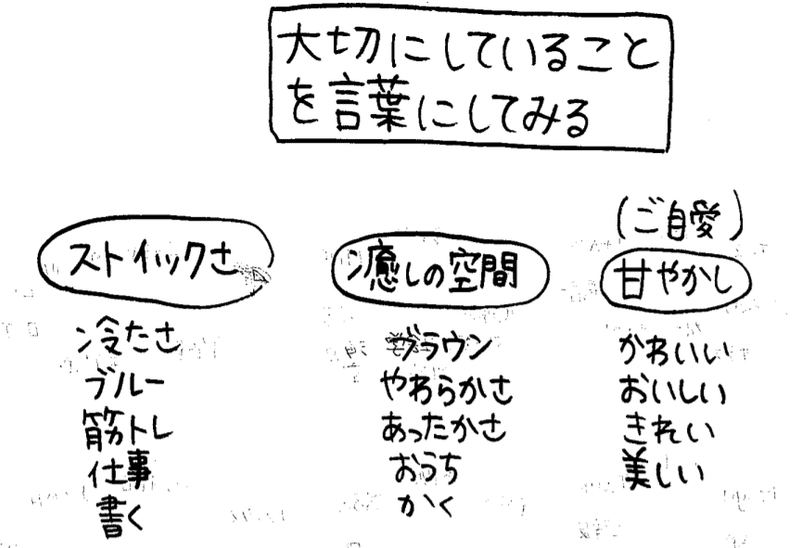 大切にしていること
を言葉にしてみる
ストイックさ
冷たさ
ブルー
筋トレ
仕事
書く
癒しの空間
ブラウン
やわらかさ
あったかさ
おうち
かく
(ご自愛)
甘やかし
かわいい
おいしい
きれい
美しい